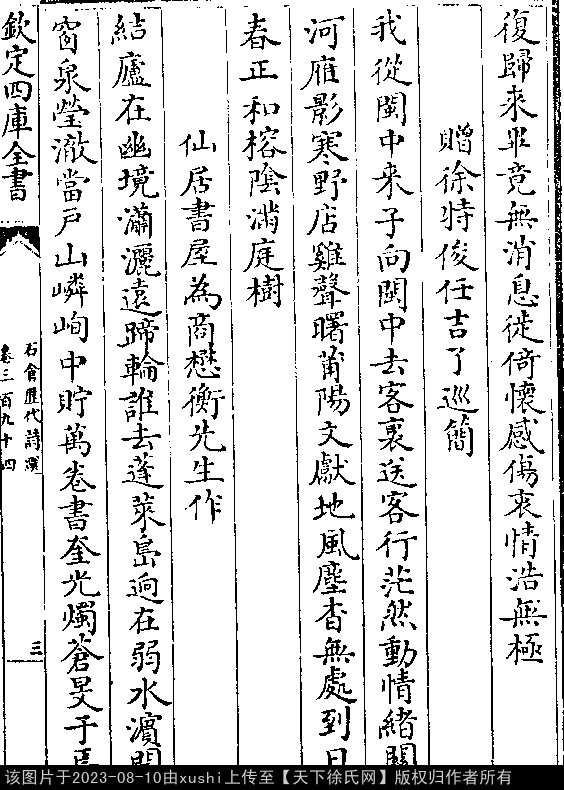 復歸來畢竟無消息徙倚懷感傷衷情浩無極
贈徐特俊任吉了巡簡
我從閩中來子向閩中去客裏送客行茫然動情緒關
河雁影寒野店雞聲曙莆陽文獻地風塵杳無處到日
春正和榕陰滿庭樹
仙居書屋為商懋衡先生作
結廬在幽境瀟灑遠蹄輪誰去蓬萊島迥在弱水濵開
窗泉瑩澈當戸山嶙峋中貯萬卷書奎光燭蒼旻于焉
欽定四庫全書
石倉歷代詩選
卷三百九十四
三
该图片于2023-08-10由xushi上传至【天下徐氏网】版权归作者所有